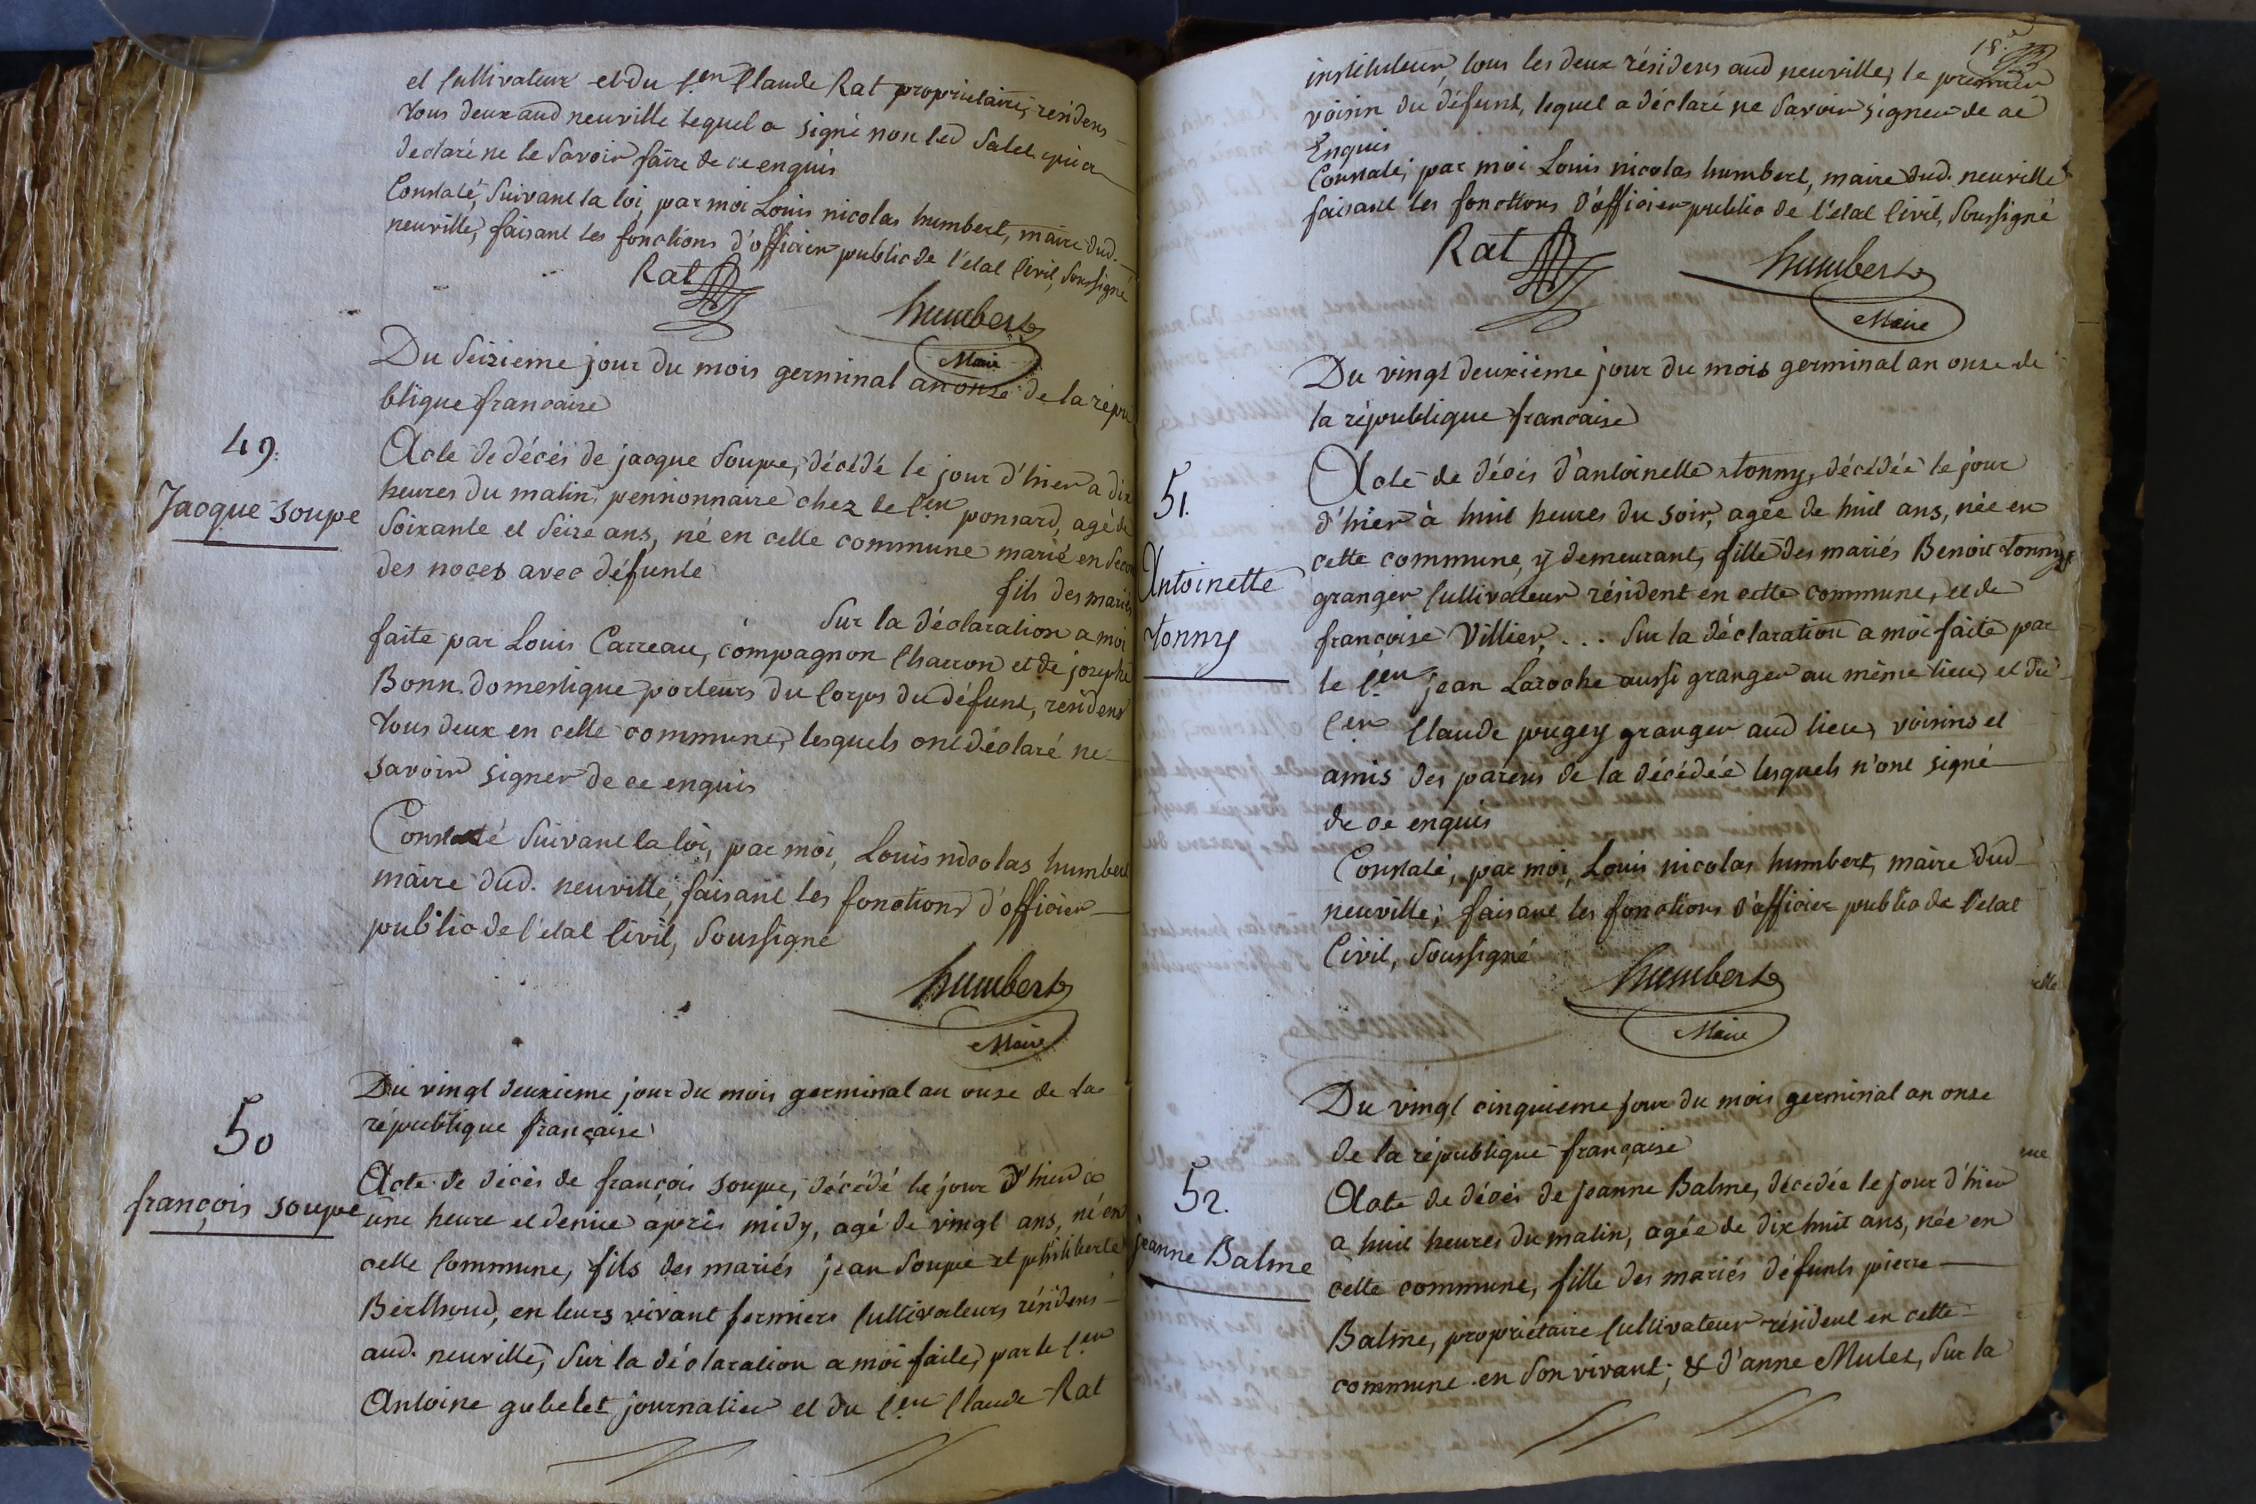 et Cultivateur et du C.en Claude Rat propriétaire, résidens
tous deux aud neuville lequel a signé non led Salet qui a
déclaré ne le Savoir faire de ce enquis
Constaté, Suivant la loi, par moi Louis nicolas humbert, maire dud.
neuville, faisant les fonctions d'officier public de l'état Civil, Soussigné
Rat
humbert
Maire
Du Seizieme jour du mois germinal an onze de la répu
blique francaise
49.
Jacque Soupe
Acte de décés de jacque Soupe, décédé le jour d'hier a dix
heures du matin, pensionnaire chez le C.en ponsard, agé de
Soixante et Seize ans, né en cette commune marié en Secon
des noces avec défunte
fils des mariés
Sur la déclaration a moi
faite par Louis Carreau, compagnon Charron et de joseph
Bonn domestique porteurs du Corps du défunt, résidens
tous deux en cette commune, lesquels ont déclaré ne
savoir signer de ce enquis
Constaté Suivant la loi, par moi, Louis nicolas humbert
maire dud. neuville, faisant les fonctions d'officier
public de l'état Civil, Soussigné
humbert
Maire
Du vingt deuxieme jour du mois germinal an onze de la
république française
50
françois soupe
Acte de décès de françois soupe, décédé le jour d'hier a
une heure et demie après midy, agé de vingt ans, né en
cette Commune, fils des mariés jean Soupe et philiberte
Berthoud, en leurs vivant fermiers Cultivateurs résidens
aud. neuville, Sur la déclaration a moi faite, par le C.en
Antoine gubelet journalier et du C.en Claude Rat
18.
instituteur, tous les deux résidens aud neuville, le premier
voisin du défunt, lequel a déclaré ne Savoir signer de ce
Enquis
Constaté, par moi Louis nicolas humbert, maire dud. neuville
faisant les fonctions d'officier public de l'état Civil, Soussigné
Rat
humbert
Maire
Du vingt deuxième jour du mois germinal an onze de
la république française
51.
Antoinette
tonny
Acte de décès d'antoinette tonny, décédée le jour
d'hier à huit heures du soir, agée de huit ans, née en
cette commune, y demeurant, fille des mariés Benoit tonny
granger Cultivateur résident en cette commune, et de
françoise Villier, . . . Sur la déclaration a moi faite par
le C.en jean Laroche aussi granger au même lieu, et du
C.en Claude pugey granger aud lieu, voisins et
amis des parens de la décédée lesquels n'ont signé
de ce enquis
Constaté, par moi, Louis nicolas humbert, maire dud
neuville, faisant les fonctions d'officier public de l'état
Civil, Soussigné
humbert
Maire
Du vingt cinquieme jour du mois germinal an onze
de la république française
52.
jeanne Balme
Acte de décés de jeanne Balme, décédée le jour d'hier
a huit heures du matin, agée de dix huit ans, née en
cette commune, fille des mariés défunts pierre
Balme, propriétaire Cultivateur résident en cette
commune en Son vivant, & d'anne Mulet, Sur la